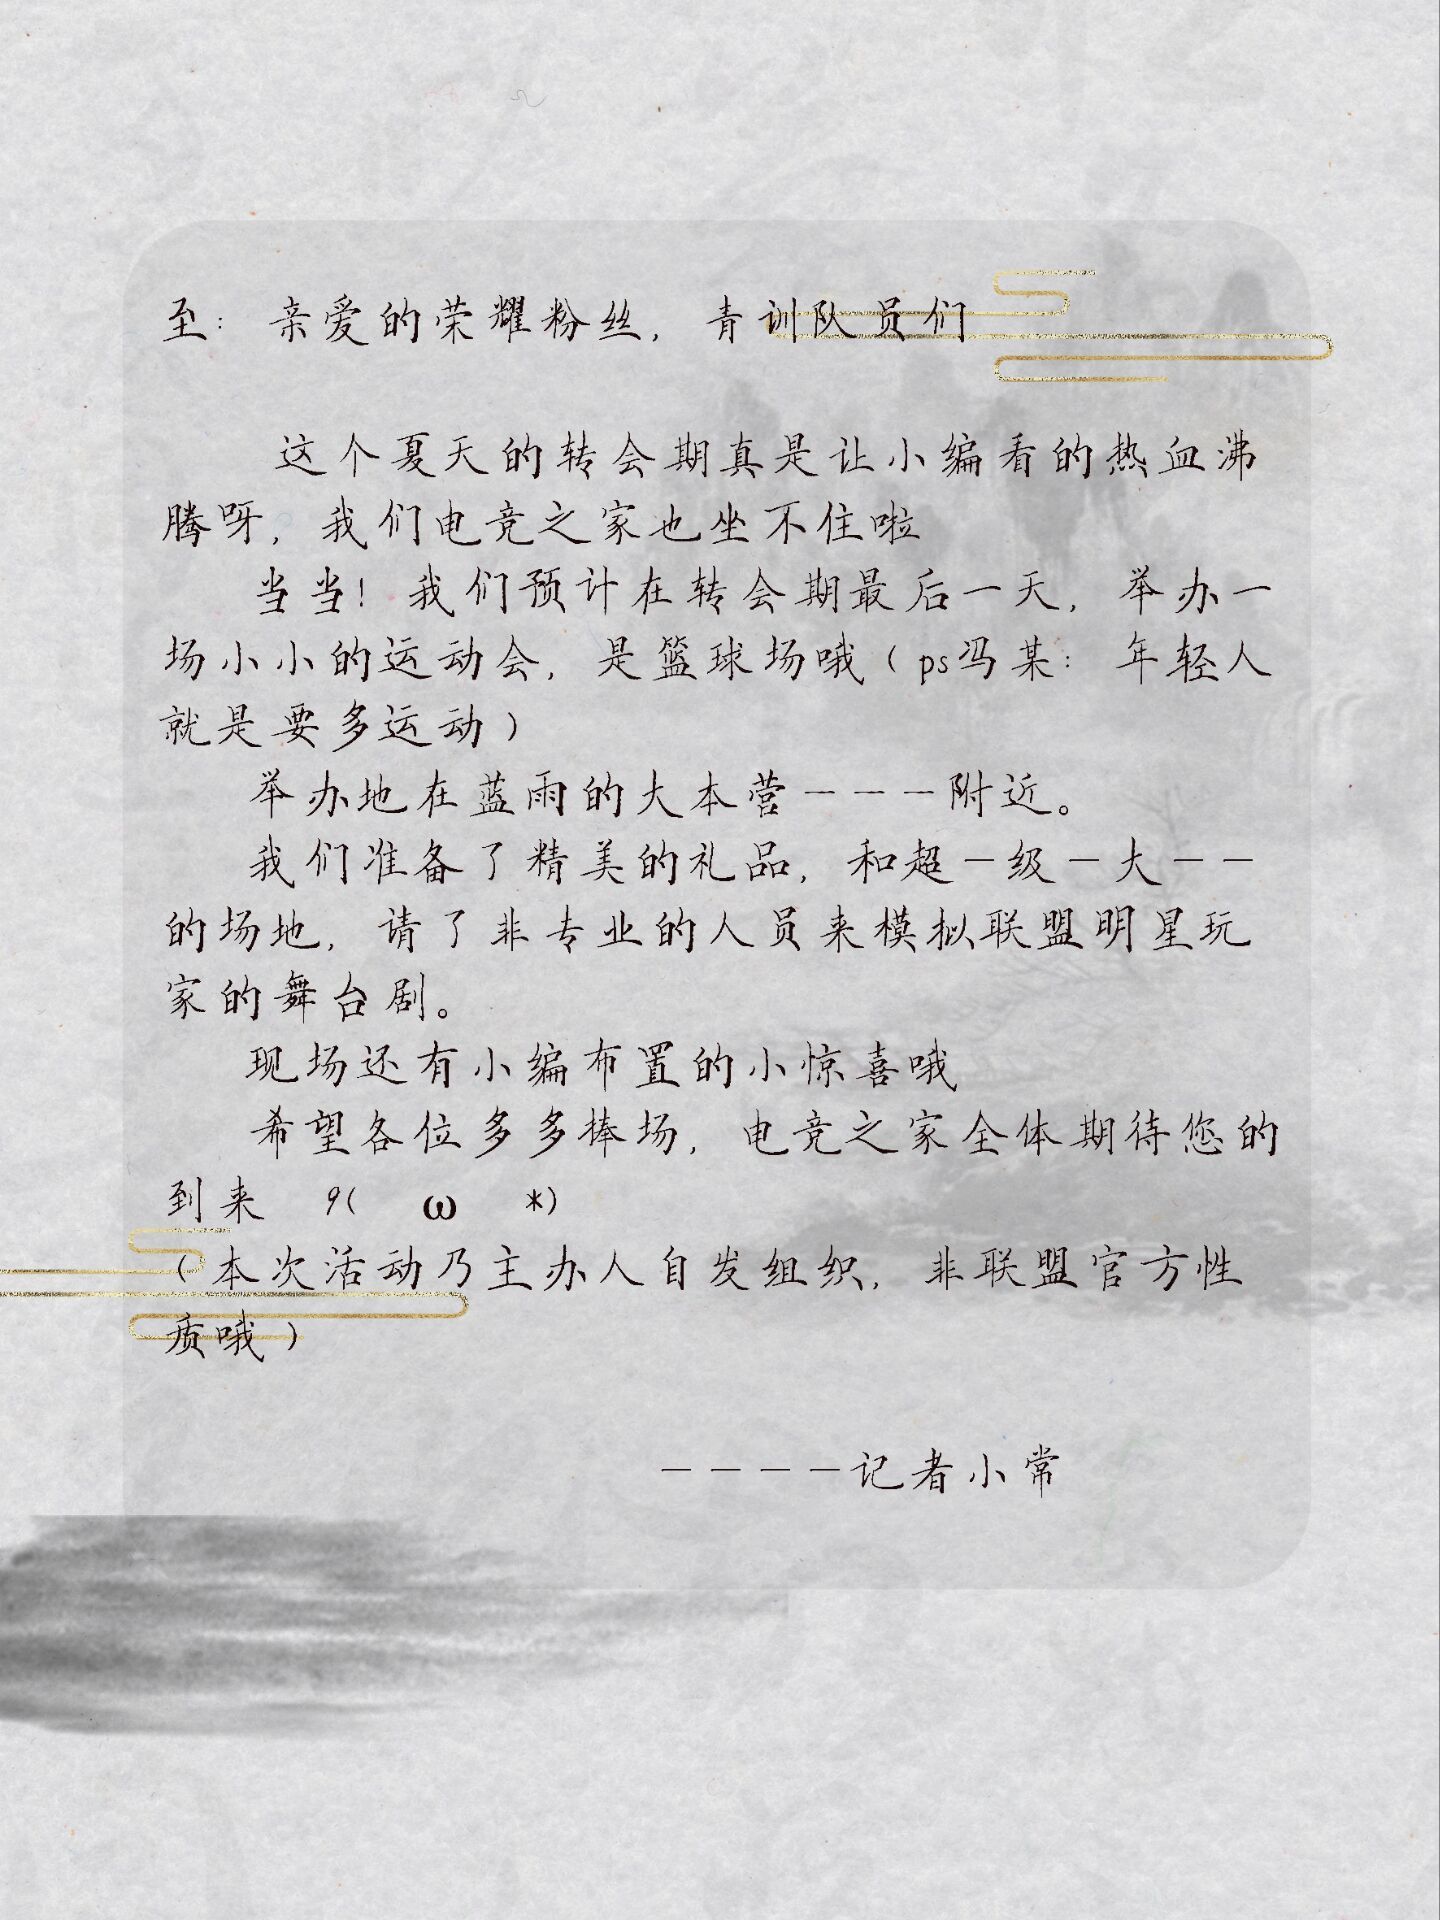 至：亲爱的荣耀粉丝，青训队员们
这个夏天的转会期真是让小编看的热血沸
腾呀，我们电竞之家也坐不住啦
当当！我们预计在转会期最后一天，举办一
场小小的运动会，是篮球场哦（ps冯某：年轻人
就是要多运动）
举办地在蓝雨的大本营---附近。
我们准备了精美的礼品，和超-级-大--
的场地，请了非专业的人员来模拟联盟明星玩
家的舞台剧。
现场还有小编布置的小惊喜哦
希望各位多多捧场，电竞之家全体期待您的
到来 9( ω *)
（本次活动乃主办人自发组织，非联盟官方性
质哦）
----记者小常